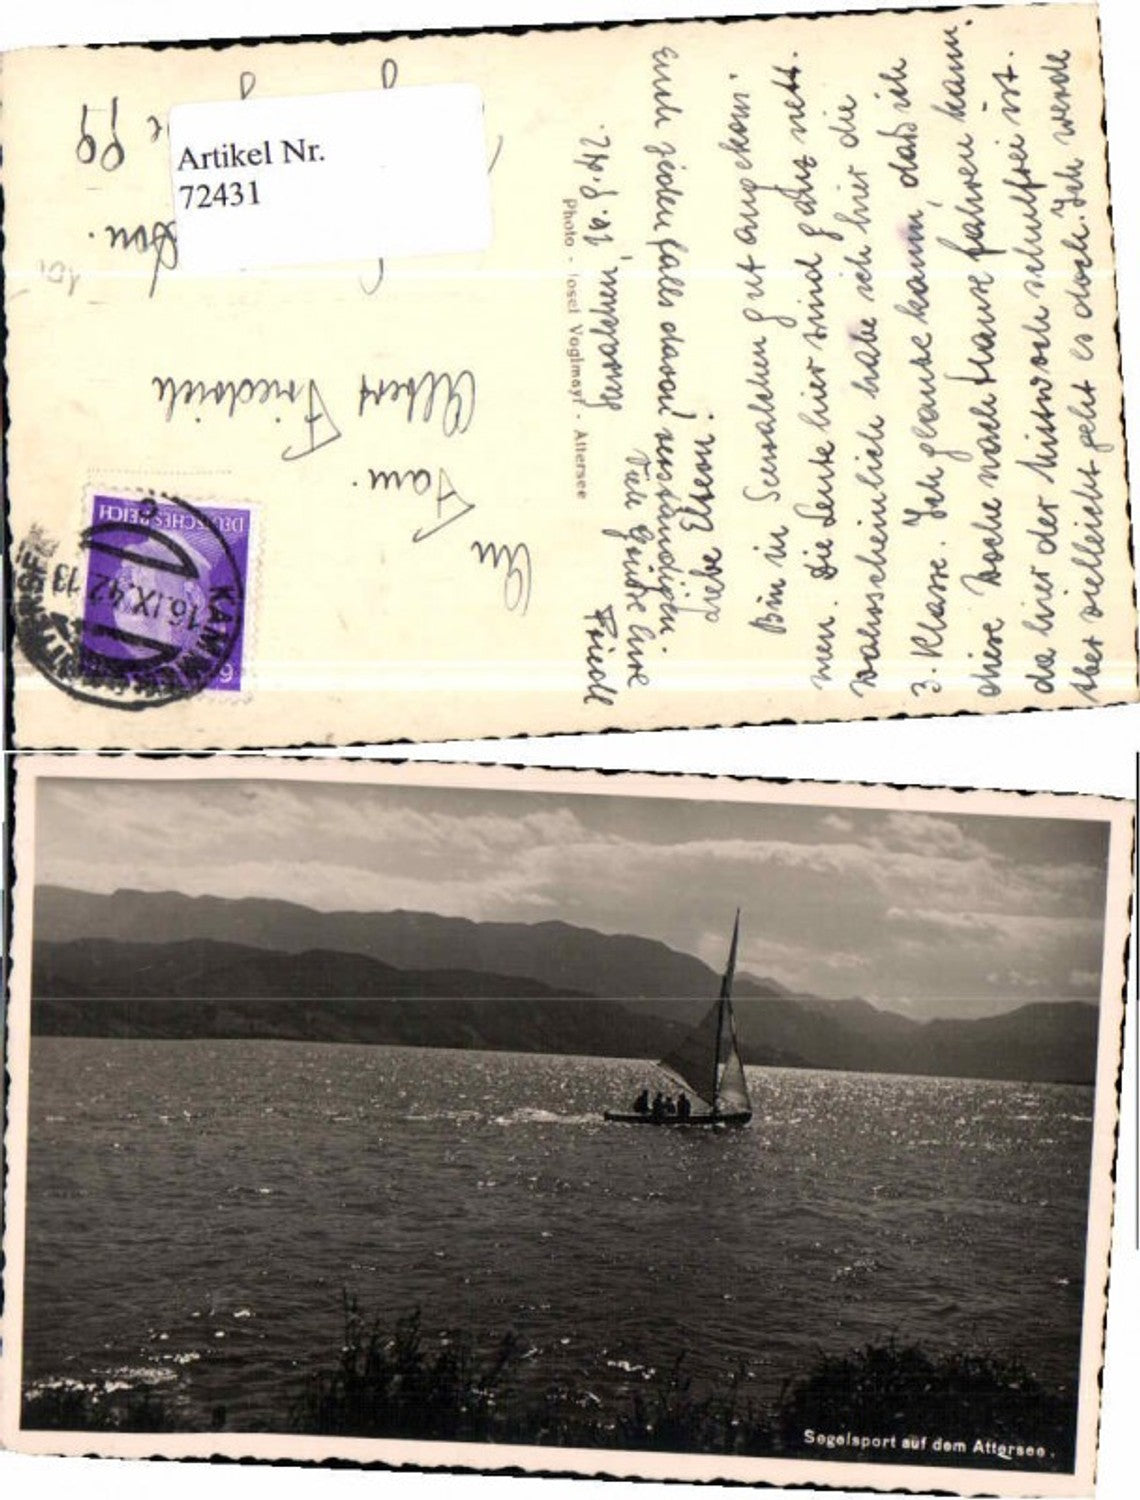 Artikel Nr.
72431
An
Fam.
Albert Friedrich
DEUTSCHES REICH
6
KAMMER
16.IX.42 13
Photo - Josef Voglmayr - Attersee
Seewalchen, 16.9.42.
Liebe Eltern!
Bin in Seewalchen gut angekom-
men. Die Leute hier sind ganz nett.
Wahrscheinlich habe ich hier die
3. Klasse. Ich glaube kaum, daß ich
diese Woche nach Hause fahren kann.
da hier der Mittwoch schulfrei ist.
Aber vielleicht geht es doch. Ich werde
euch jedenfalls davon verständigen.
Viele Grüße Eure
Friedl
Segelsport auf dem Attersee.